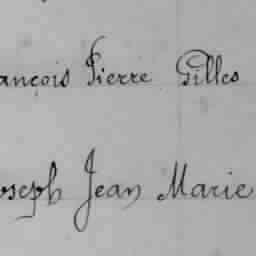 ançois Pierre Gilles
oseph Jean Marie